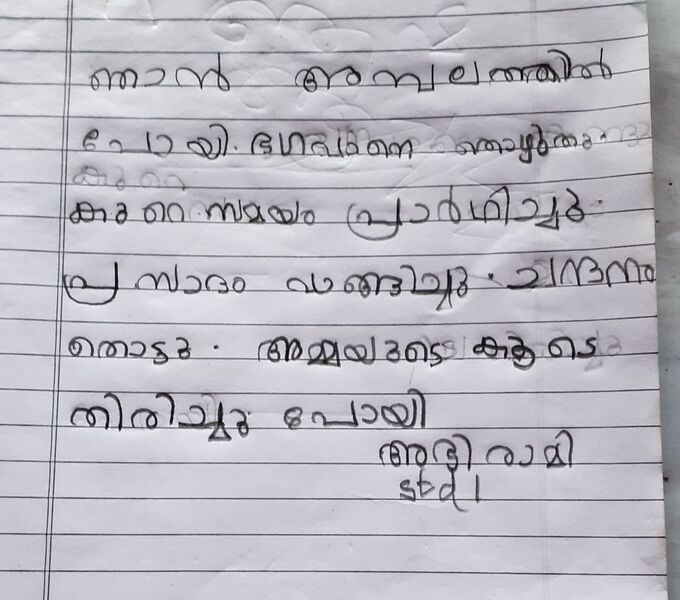 ഞാൻ അമ്പലത്തിൽ
പോയി. ഭഗവാനെ തൊഴുതു.
കുറെ സമയം പ്രാർഥിച്ചു.
പ്രസാദം വാങ്ങിച്ചു. ചന്ദനം
തൊട്ടു. അമ്മയുടെ കൂടെ
തിരിച്ചു പോയി
അഭിരാമി
std 1